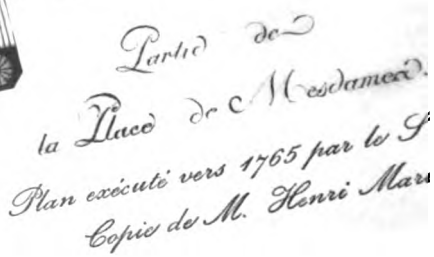 Partie de
la Place de Mesdames.
Plan exécuté vers 1765 par le S
Copie de M. Henri